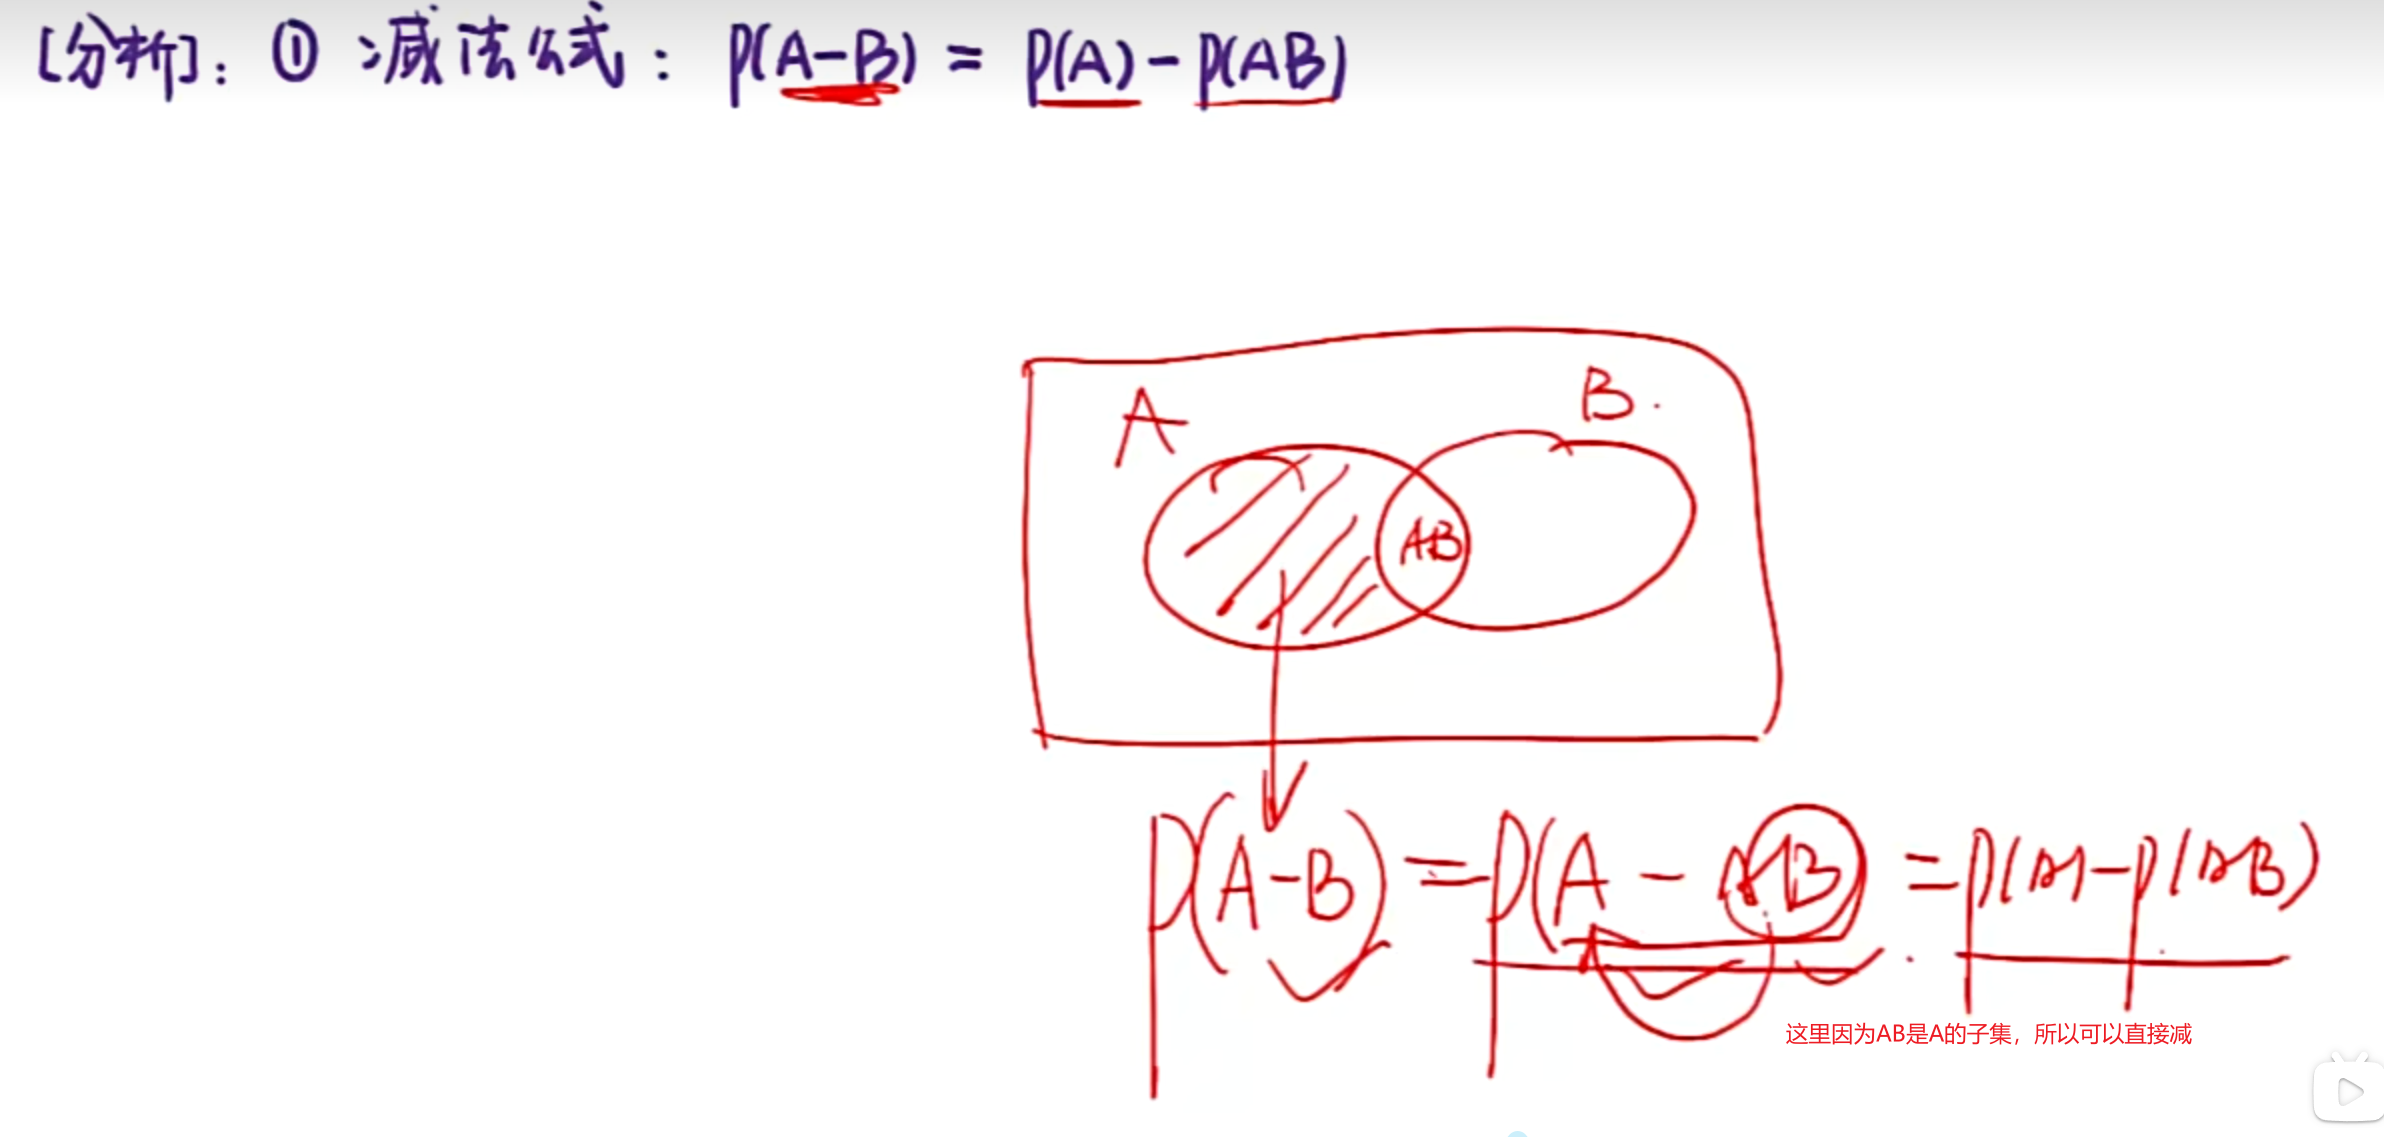 [分析]: ① 减法公式: P(A-B) = P(A) - P(AB)
A
B.
AB
P(A-B) = P(A - AB) = P(A) - P(AB)
这里因为AB是A的子集，所以可以直接减